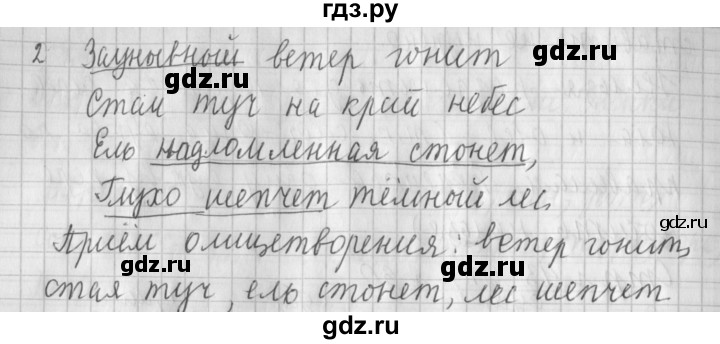 гдз.ру
2 Заунывный ветер гонит
gdz.ru gdz.ru
Стаи туч на край небес
Ель надломленная стонет,
gdz.ru
Глухо шепчет тёмный лес.
gdz.ru
Приём олицетворения: ветер гонит,
gdz.ru gdz.ru
стая туч, ель стонет, лес шепчет
gdz.ru